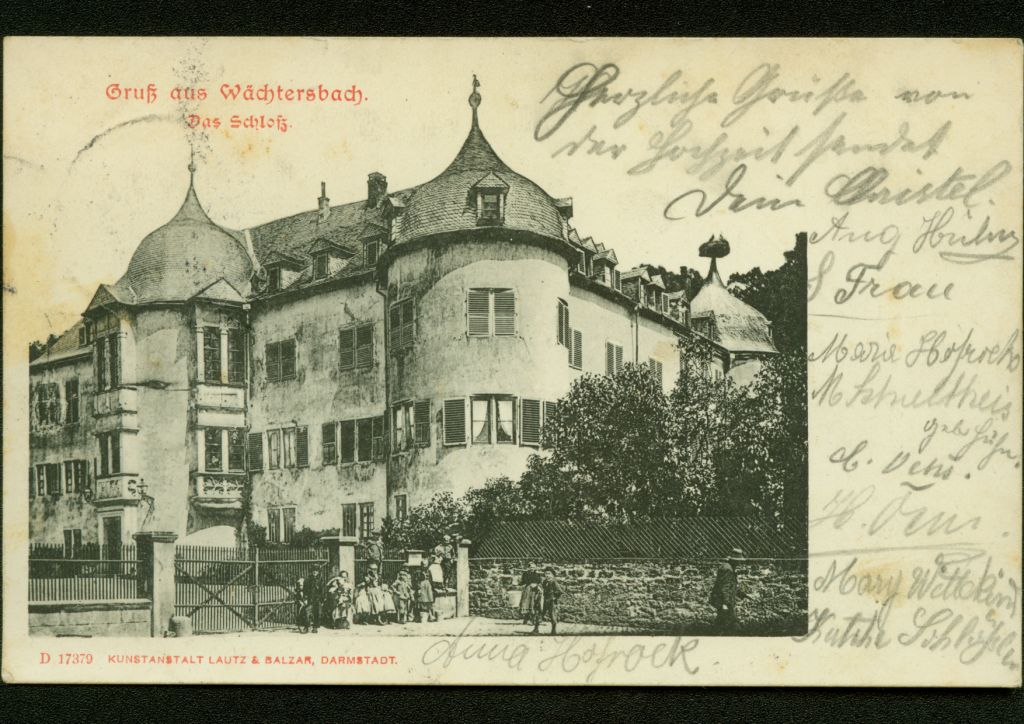 Gruß aus Wächtersbach.
Das Schloß.
Herzliche Grüße von
der Hochzeit sendet
Dein Christel.
Aug Hühn
Frau
Marie Hofrock
M Schultheis
geb Hühn.
C.
H.
Mary Wittekind
Käthe
Anna Hofrock
D 17379 KUNSTANSTALT LAUTZ & BALZAR, DARMSTADT.